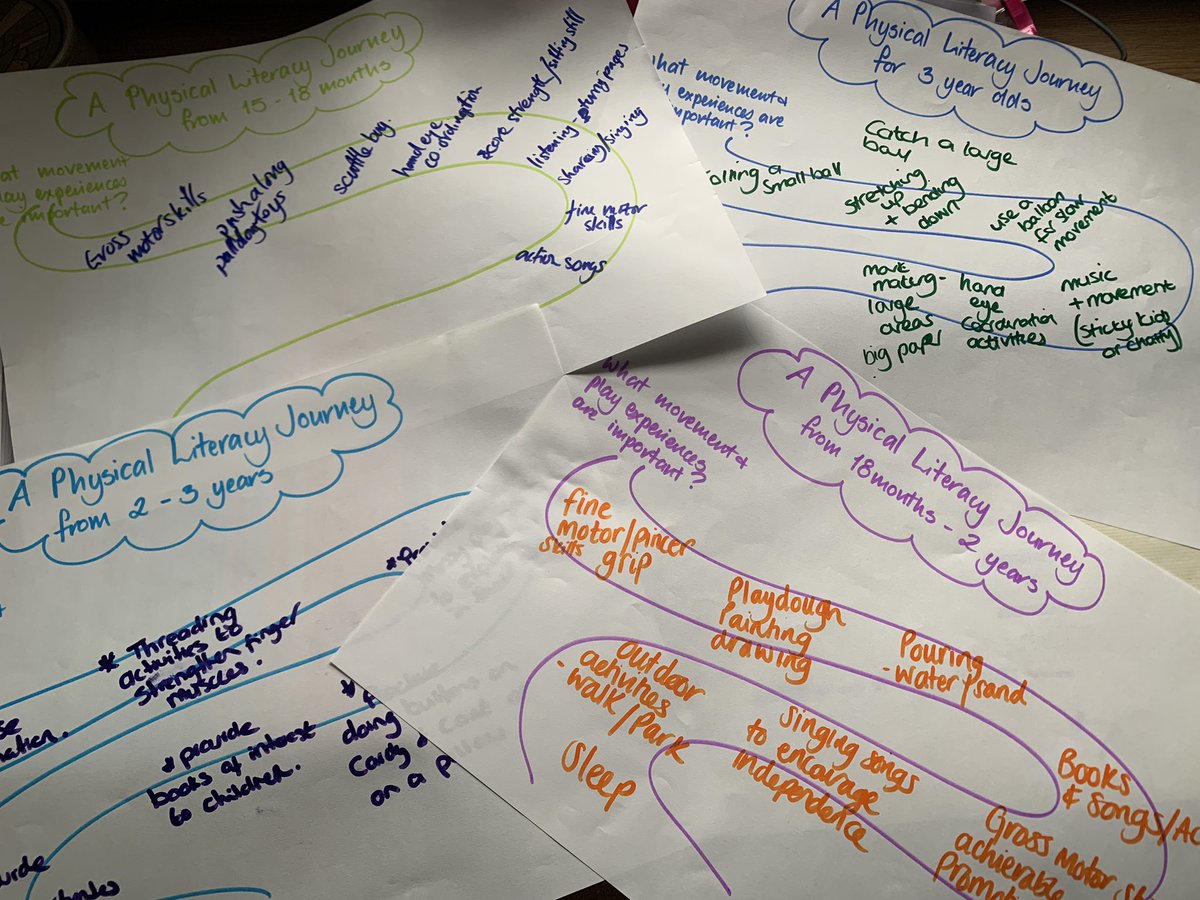 A Physical Literacy Journey
from 15 - 18 months
movement
play experiences
important?
Gross
motor skills
push along
pull along toys
scuttle bug.
hand eye
co ordination
score strength/sitting still
listening - turning pages
sharing/singing
fine motor
skills
action songs
A Physical Literacy Journey
for 3 year olds
what movement &
experiences are
important?
Catch a large
ball
a
small ball
stretching
up
+ bending
down
use a
balloon
for slow
movement
mark
making -
large
areas
big paper
hand
eye
coordination
activities
music
+ movement
(sticky kids
or chatty)
A Physical Literacy Journey
from 2 - 3 years
* Threading
activities to
strengthen finger
muscles.
* provide
books of interest
to children.
doing
on a
A Physical Literacy Journey
from 18 months - 2 years
what movement &
play experiences
are important?
fine
motor/pincer
skills grip
Playdough
Painting
drawing
Pouring
- water/sand
Books
& songs/
Outdoor
activities
- walk/Park
Singing songs
to encourage
independence
Sleep
Gross Motor
achievable